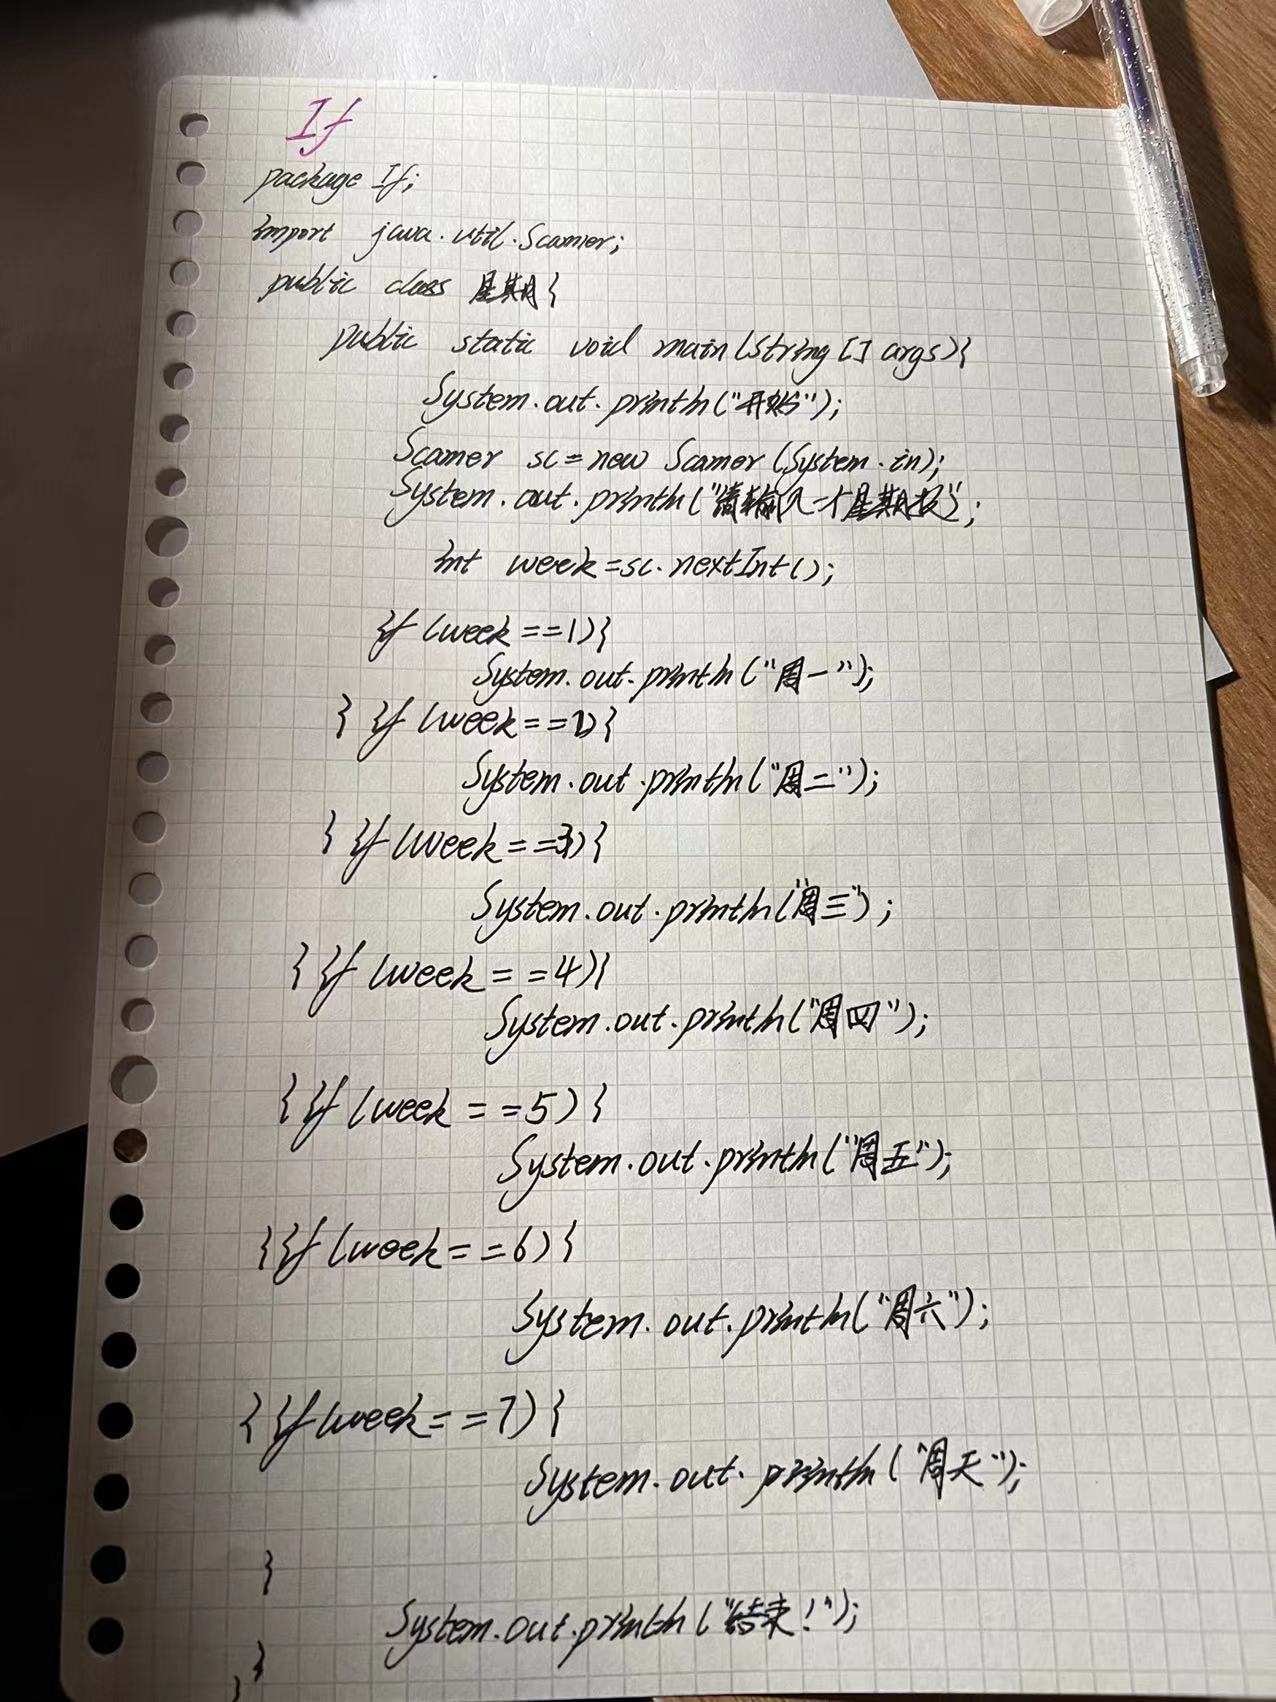 If
package If;
import java.util.Scanner;
public class 星期{
public static void main(String[] args){
System.out.println("开始");
Scanner sc=new Scanner(System.in);
System.out.println("请输入一个星期数");
int week=sc.nextInt();
if(week==1){
System.out.println("周一");
} if(week==2){
System.out.println("周二");
} if(week==3){
System.out.println("周三");
} if(week==4){
System.out.println("周四");
} if(week==5){
System.out.println("周五");
} if(week==6){
System.out.println("周六");
} if(week==7){
System.out.println("周天");
}
System.out.println("结束!");
}
}